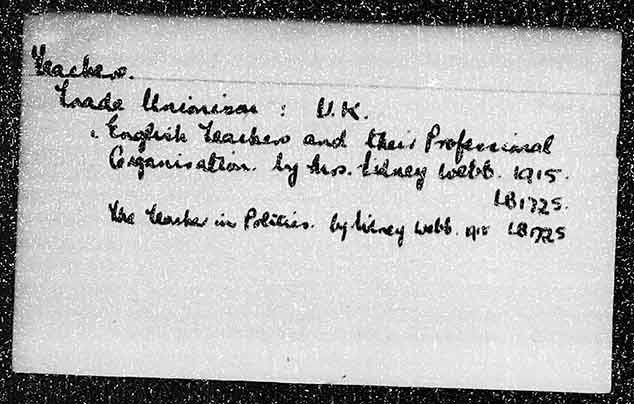 Teachers.
Trade Unionism : U.K.
English Teachers and their Professional
Organisation. by Mrs. Sidney Webb. 1915.
LB1725.
The Teacher in Politics. by Sidney Webb. 1915 LB1725